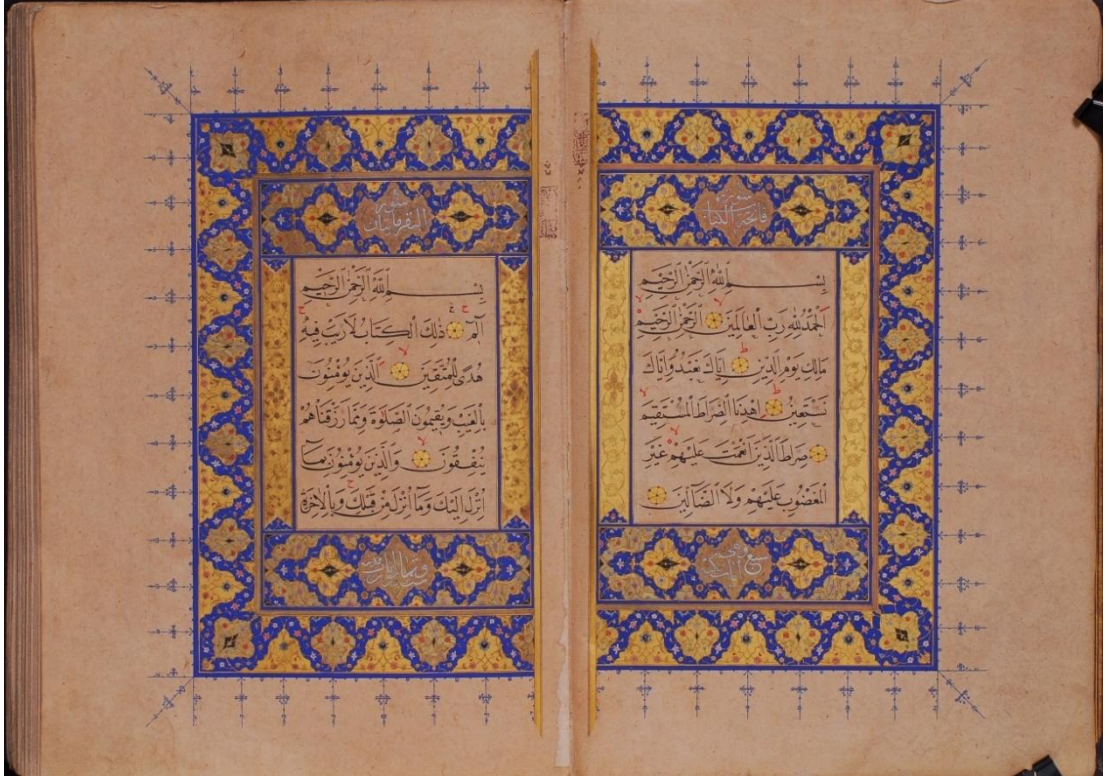 سورة
فاتحة الكتاب
بِسْمِ اللّٰهِ الرَّحْمٰنِ الرَّحِيمِ
اَلْحَمْدُ لِلّٰهِ رَبِّ الْعَالَمِينَ ۝ اَلرَّحْمٰنِ الرَّحِيمِ
مَالِكِ يَوْمِ الدِّينِ ۝ اِيَّاكَ نَعْبُدُ وَاِيَّاكَ
نَسْتَعِينُ ۝ اِهْدِنَا الصِّرَاطَ الْمُسْتَقِيمَ
۝ صِرَاطَ الَّذِينَ اَنْعَمْتَ عَلَيْهِمْ غَيْرِ
الْمَغْضُوبِ عَلَيْهِمْ وَلَا الضَّالِّينَ ۝
وهي
سبع آيات
سورة
البقرة مايتان
بِسْمِ اللّٰهِ الرَّحْمٰنِ الرَّحِيمِ
الٓمٓ ۝ ذٰلِكَ الْكِتَابُ لَا رَيْبَ فِيهِ
هُدًى لِلْمُتَّقِينَ ۝ اَلَّذِينَ يُؤْمِنُونَ
بِالْغَيْبِ وَيُقِيمُونَ الصَّلٰوةَ وَمِمَّا رَزَقْنَاهُمْ
يُنْفِقُونَ ۝ وَالَّذِينَ يُؤْمِنُونَ بِمَآ
اُنْزِلَ اِلَيْكَ وَمَآ اُنْزِلَ مِنْ قَبْلِكَ وَبِالْاٰخِرَةِ